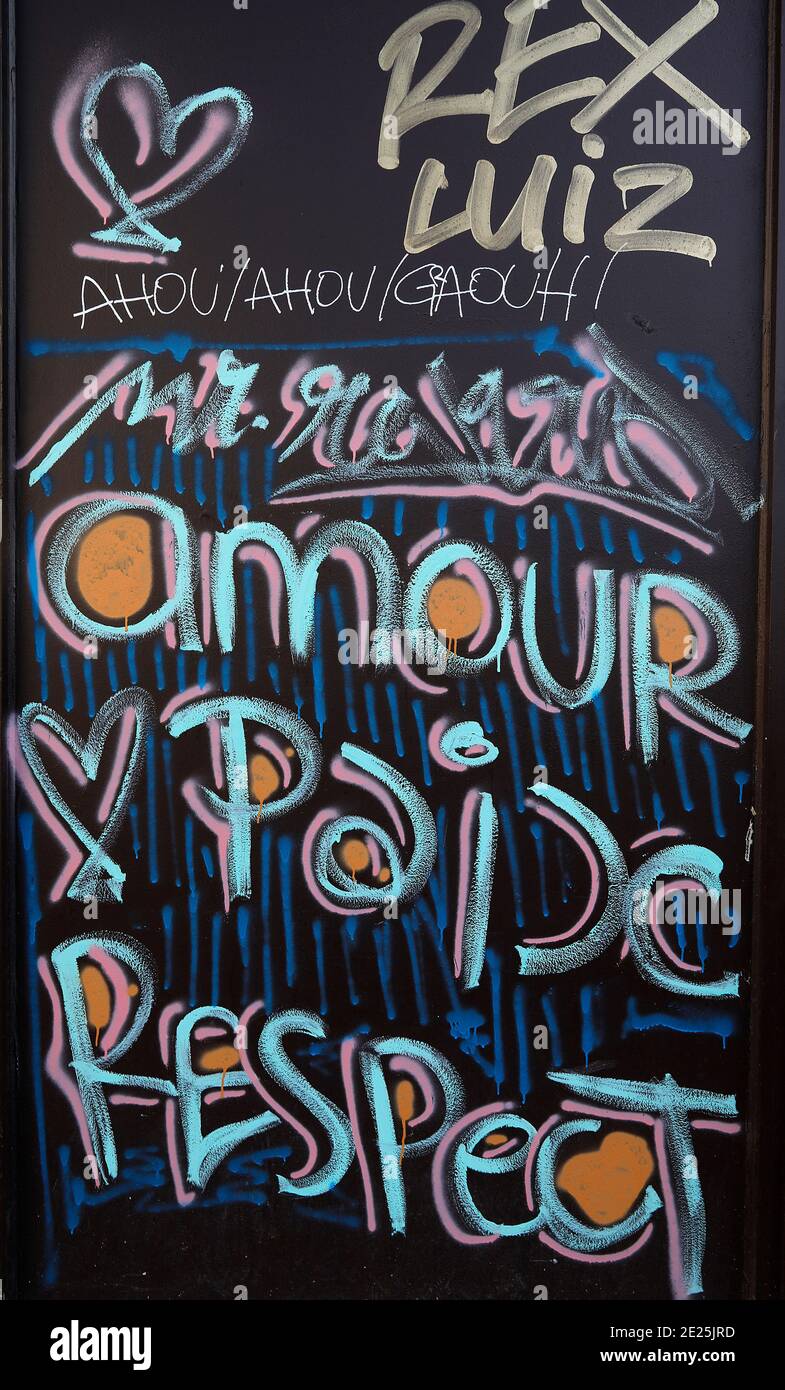 REX
LUiZ
AHOU/AHOU/GAOUH/
mr.
amOUR
PaiDC
RESPecT
alamy
Image ID: 2E25JRD
www.alamy.com